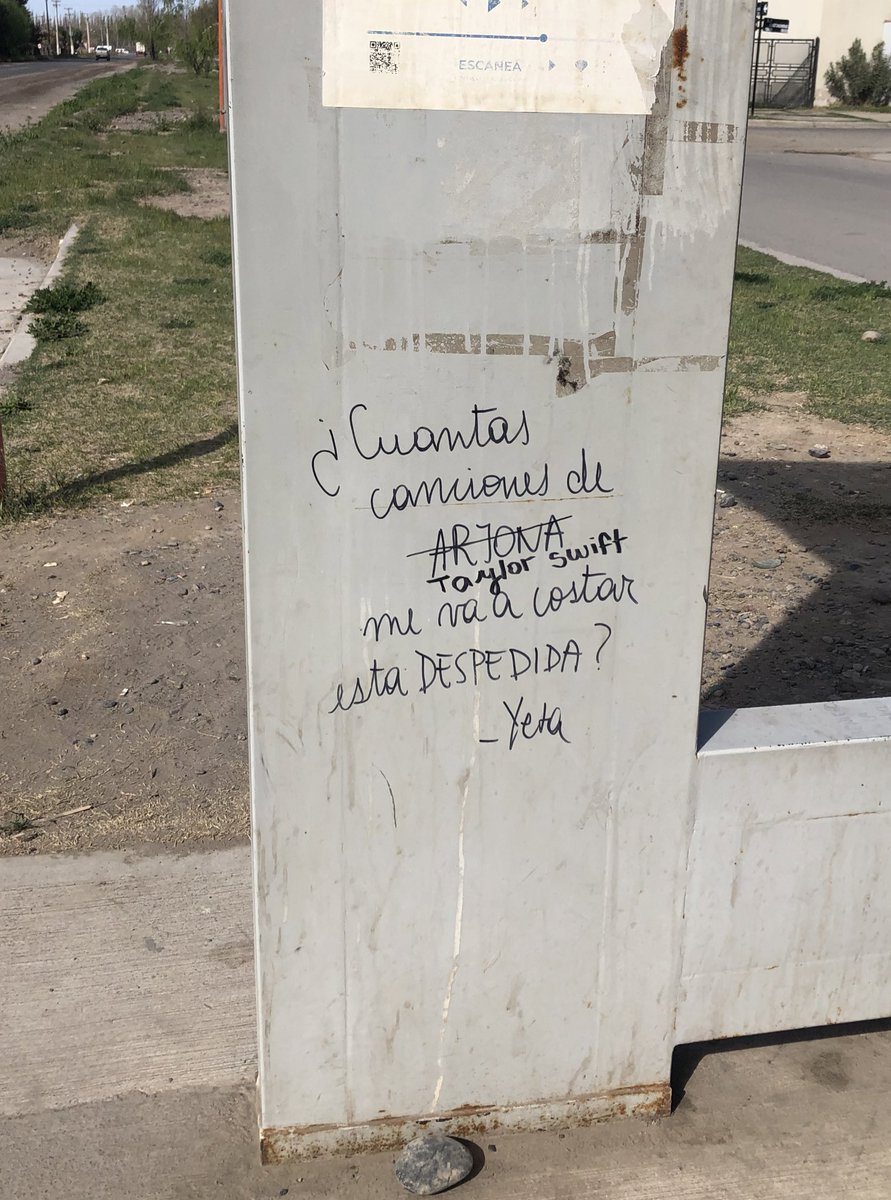 ESCANEA
¿Cuantas
canciones de
ARJONA
Taylor Swift
me va a costar
esta DESPEDIDA?
_Yeta